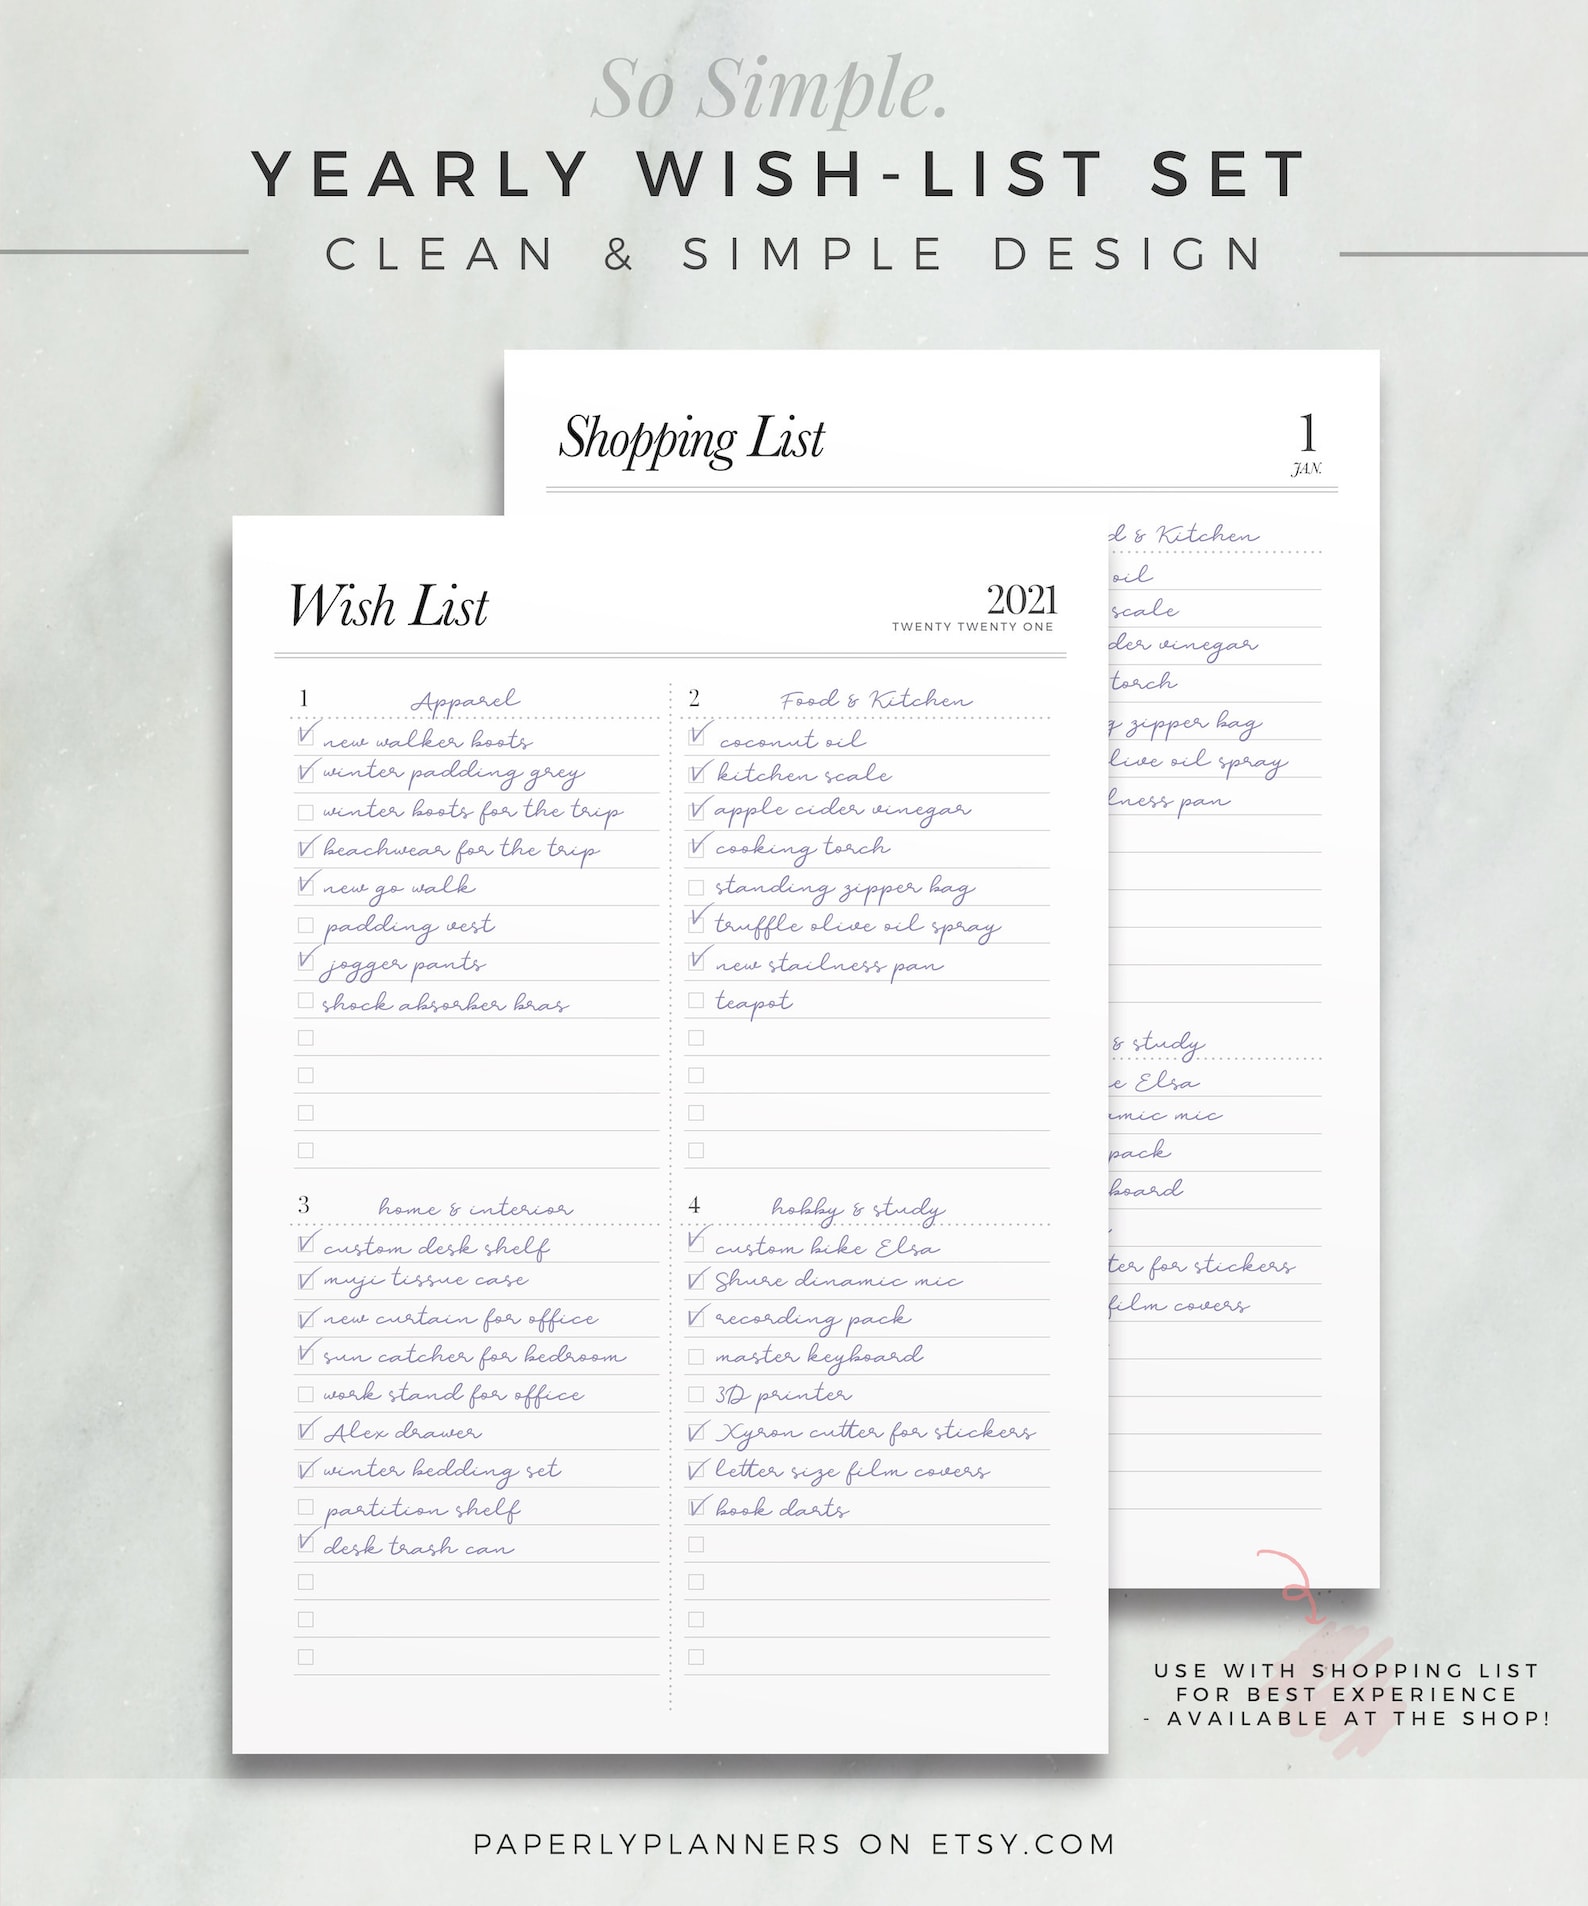 So Simple.
YEARLY WISH-LIST SET
CLEAN & SIMPLE DESIGN
Shopping List
1
JAN.
& Kitchen
oil
scale
vinegar
torch
zipper bag
oil spray
pan
& study
Elsa
mic
pack
for stickers
film covers
Wish List
2021
TWENTY TWENTY ONE
1 Apparel
new walker boots
winter padding grey
winter boots for the trip
beachwear for the trip
new go walk
padding vest
jogger pants
shock absorber bras
2 Food & Kitchen
coconut oil
kitchen scale
apple cider vinegar
cooking torch
standing zipper bag
truffle olive oil spray
new stailness pan
teapot
3 home & interior
custom desk shelf
muji tissue case
new curtain for office
sun catcher for bedroom
work stand for office
Alex drawer
winter bedding set
partition shelf
desk trash can
4 hobby & study
custom bike Elsa
Shure dinamic mic
recording pack
master keyboard
3D printer
Xyron cutter for stickers
letter size film covers
book darts
USE WITH SHOPPING LIST
FOR BEST EXPERIENCE
- AVAILABLE AT THE SHOP!
PAPERLYPLANNERS ON ETSY.COM